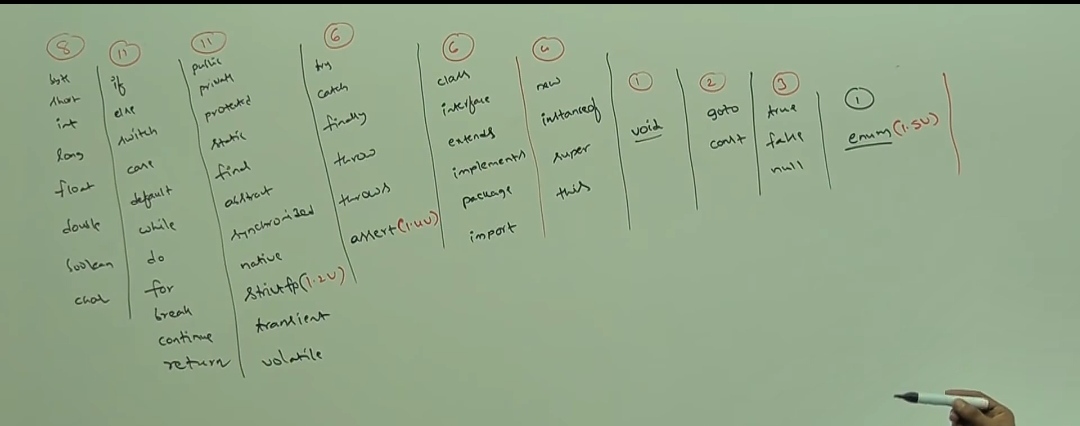 8
byte
short
int
long
float
double
boolean
char
11
if
else
switch
case
default
while
do
for
break
continue
return
11
public
private
protected
static
final
abstract
synchronized
native
strictfp(1.2V)
transient
volatile
6
try
catch
finally
throw
throws
assert(1.4V)
6
class
interface
extends
implements
package
import
4
new
instanceof
super
this
1
void
2
goto
const
3
true
false
null
1
enum(1.5V)